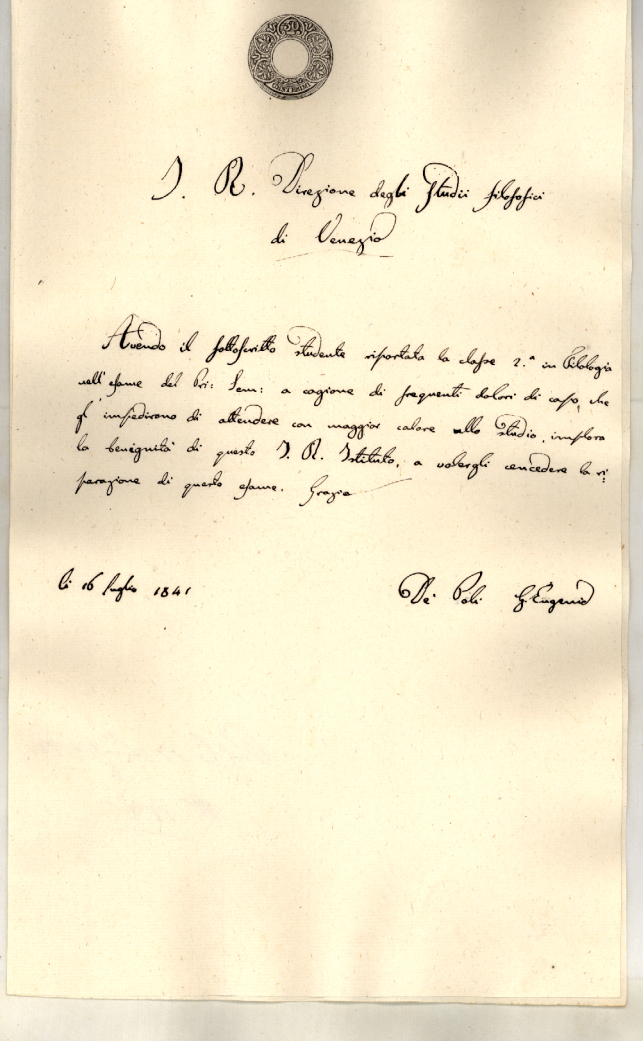 50
CENTESIMI
I. R. Direzione degli Studii filosofici
di Venezia
Avendo il sottoscritto studente riportata la classe 2.ª in Filologia
nell'esame del Pri: Sem: a cagione di frequenti dolori di capo, che
gl'impedirono di attendere con maggior calore allo studio, implora
la benignità di questo I. R. Istituto, a volergli concedere la ri:
parazione di questo esame. Grazie
li 16 luglio 1841
De Poli G. Eugenio